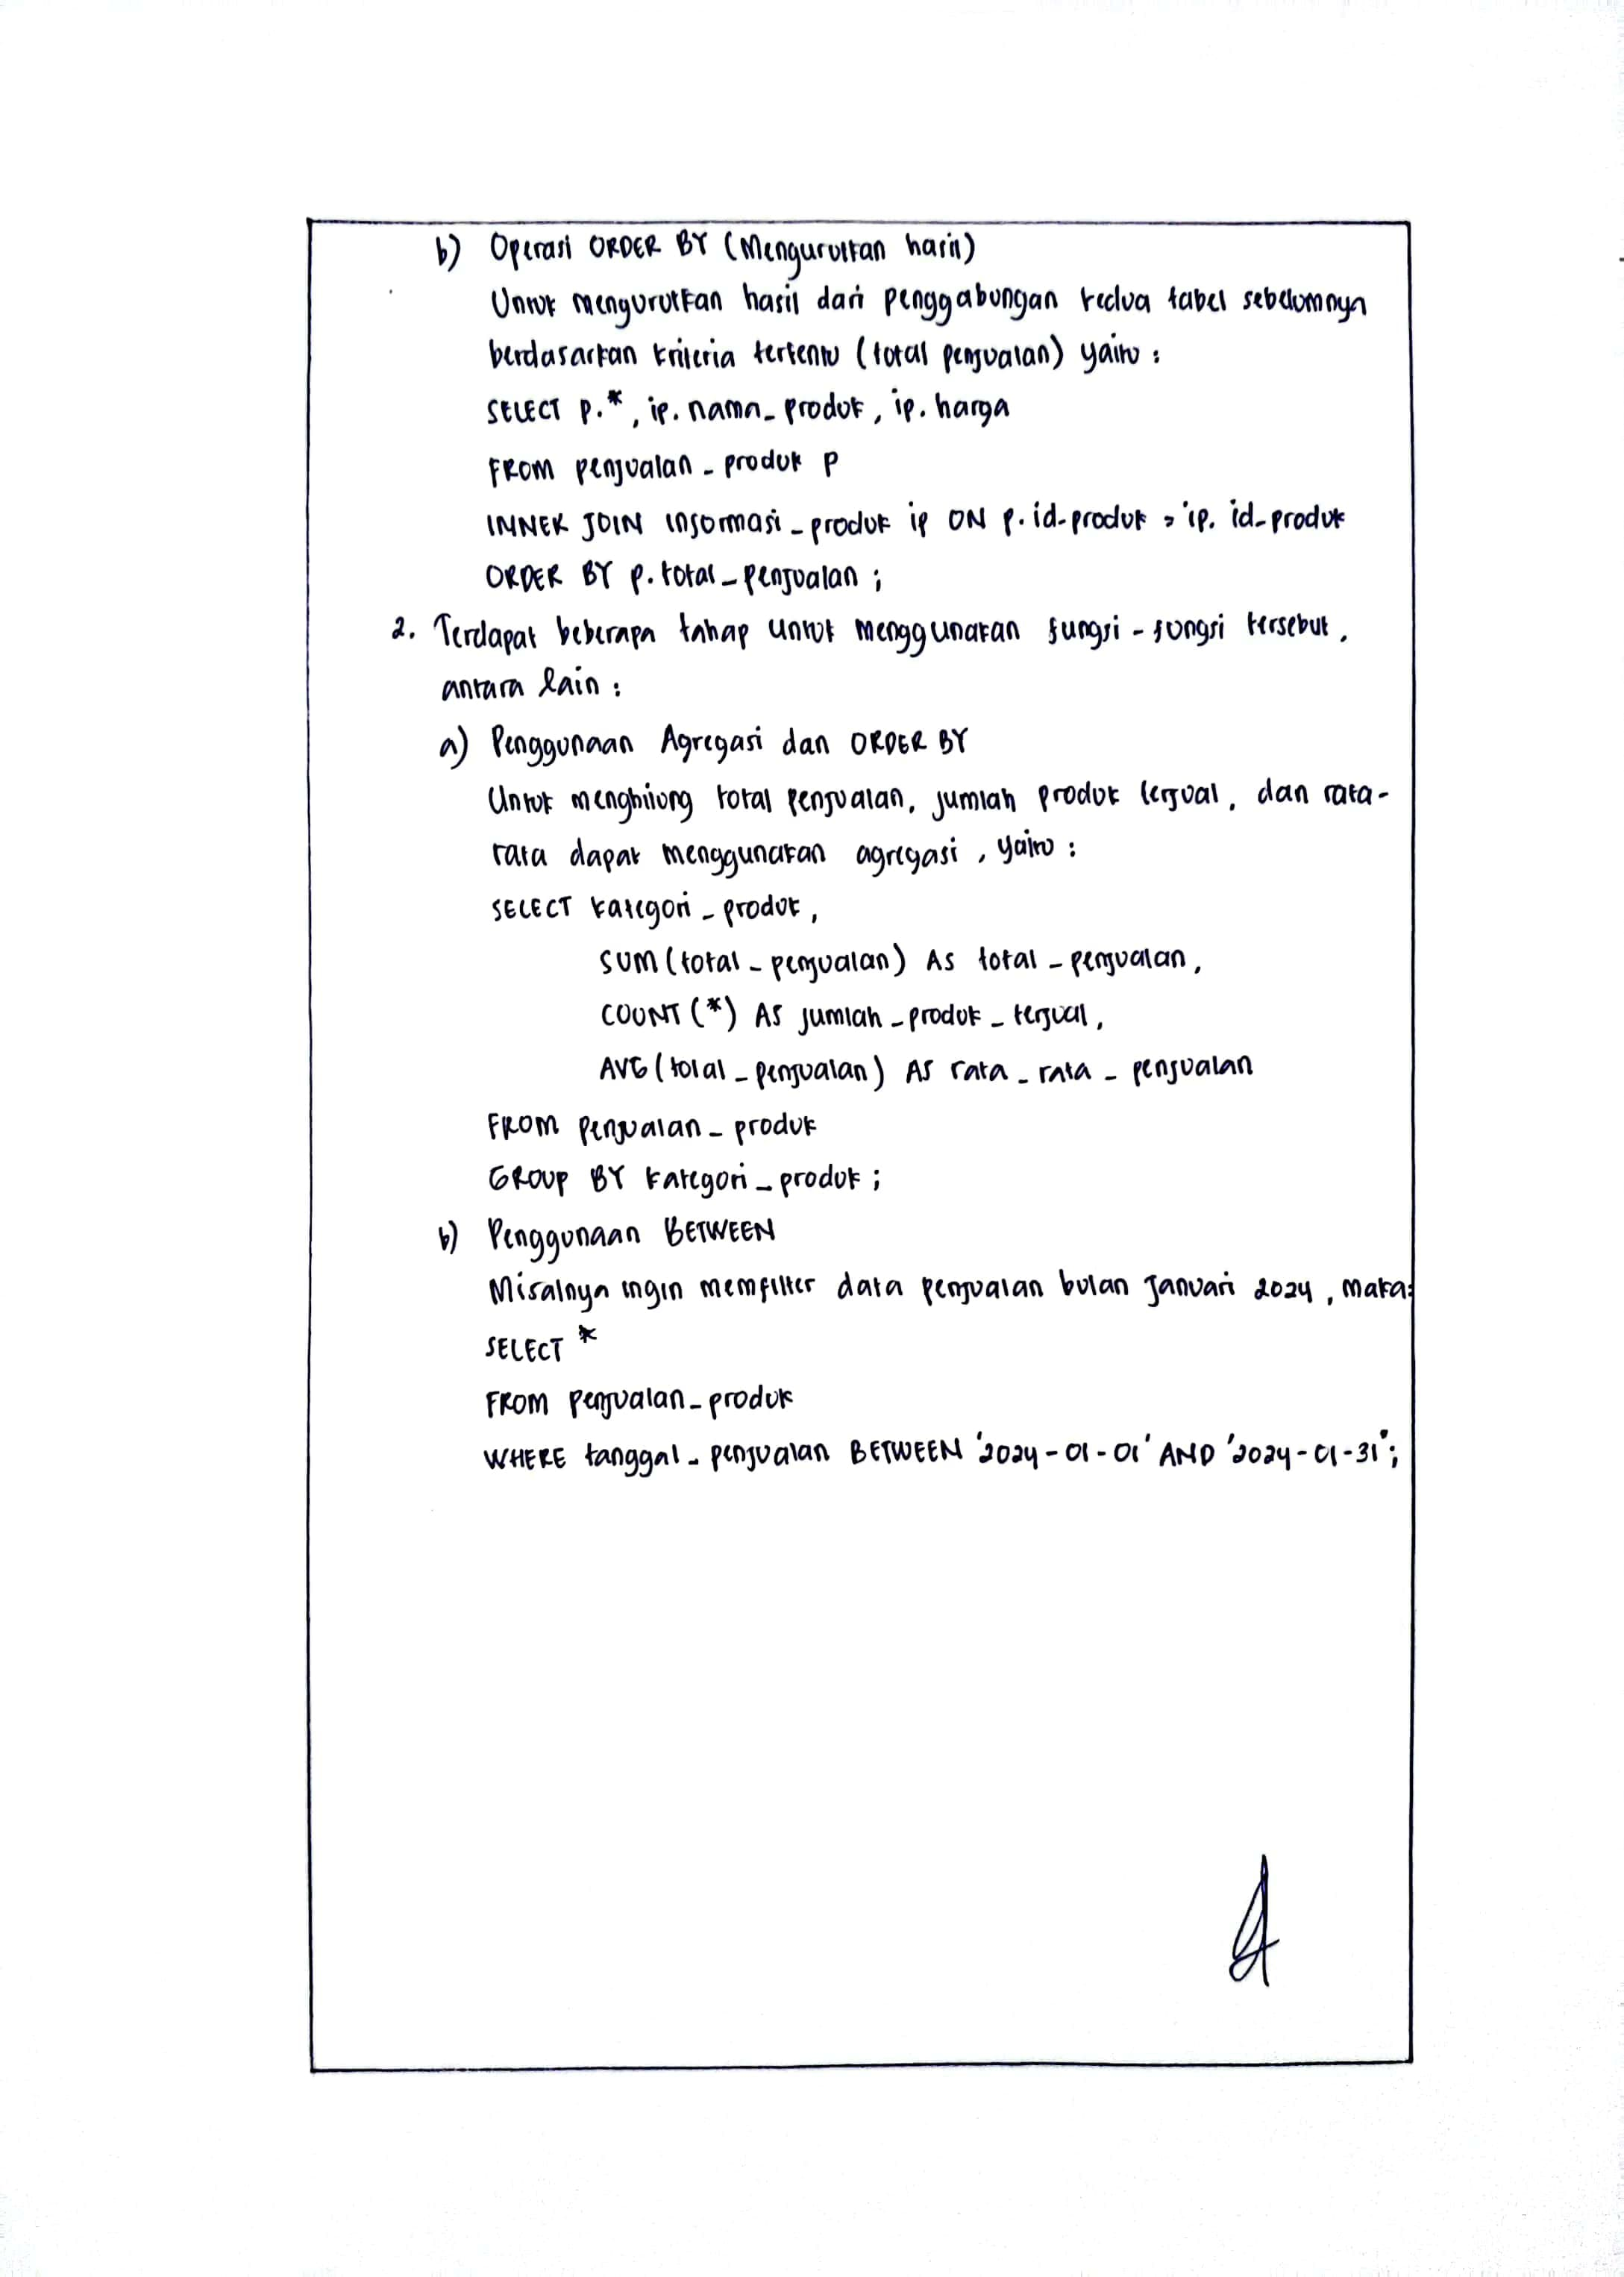 b) Operasi ORDER BY (Mengurutkan hasil)
Untuk mengurutkan hasil dari penggabungan kedua tabel sebelumnya
berdasarkan kriteria tertentu (total penjualan) yaitu :
SELECT p.*, ip. nama_produk, ip. harga
FROM penjualan_produk p
INNER JOIN informasi_produk ip ON p. id-produk = ip. id-produk
ORDER BY p. total_penjualan ;
2. Terdapat beberapa tahap untuk menggunakan fungsi-fungsi tersebut,
antara lain :
a) Penggunaan Agregasi dan ORDER BY
Untuk menghitung total penjualan, jumlah produk terjual, dan rata-
rata dapat menggunakan agregasi, yaitu :
SELECT kategori_produk,
SUM (total_penjualan) AS total_penjualan,
COUNT (*) AS jumlah_produk_terjual,
AVG (total_penjualan) AS rata_rata_penjualan
FROM penjualan_produk
GROUP BY kategori_produk ;
b) Penggunaan BETWEEN
Misalnya ingin memfilter data penjualan bulan Januari 2024, maka:
SELECT *
FROM penjualan_produk
WHERE tanggal_penjualan BETWEEN '2024-01-01' AND '2024-01-31';